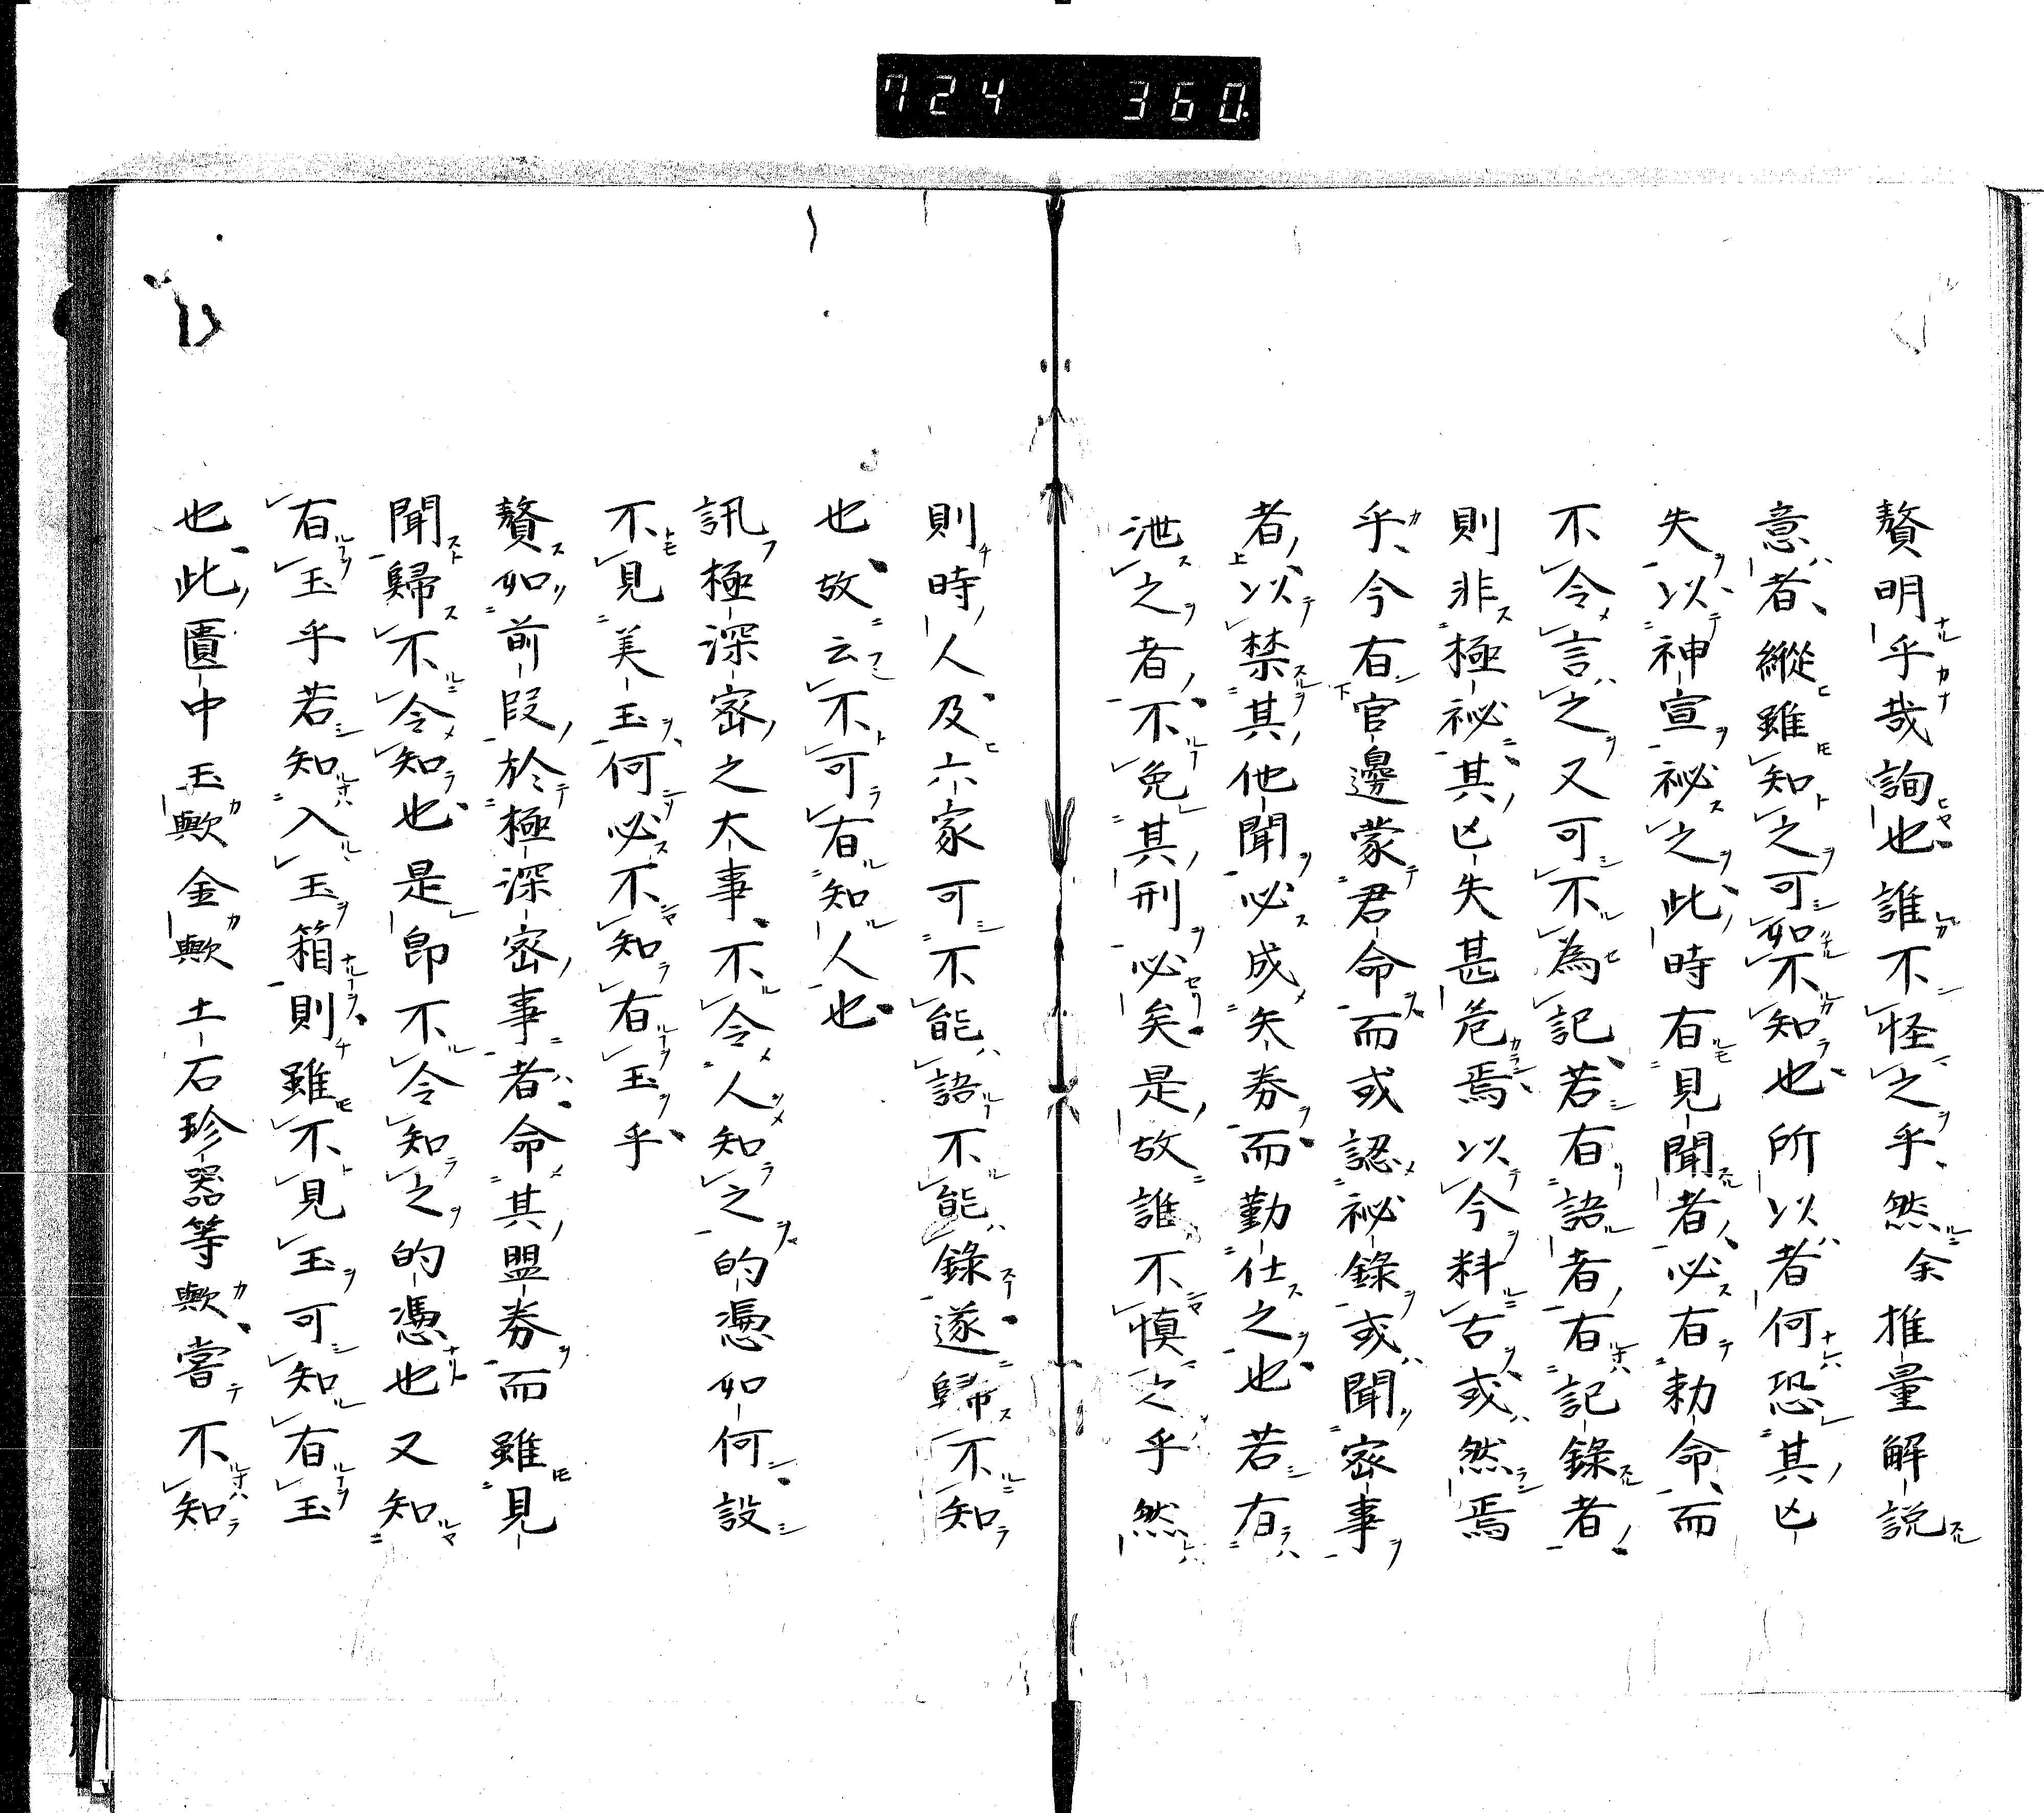 724 360.
贅明乎哉詢也誰不怪之乎然余推量解説
意者縱雖知之可如不知也所以者何恐其亡
失以神宣秘之此時有見聞者必有勅命而
不令言之又可不為記若有語者有記錄者
則非極祕其亡失甚危焉以今料古或然焉
乎今有官邊蒙君命而或認祕錄或聞密事
者以禁其他聞必成矢券而勤仕之也若有
泄之者不免其刑必矣是故誰不慎之乎然
則時人及六家可不能語不能錄遂歸不知
也故云不可有知人也
訊極深密之大事不令人知之的憑如何設
不見美玉何必不知有玉乎
贅如前段於極深密事者命其盟券而雖見
聞歸不令知也是卽不令知之的憑也又知
有玉乎若知入玉箱則雖不見玉可知有玉
也此匱中玉歟金歟土石珍器等歟嘗不知